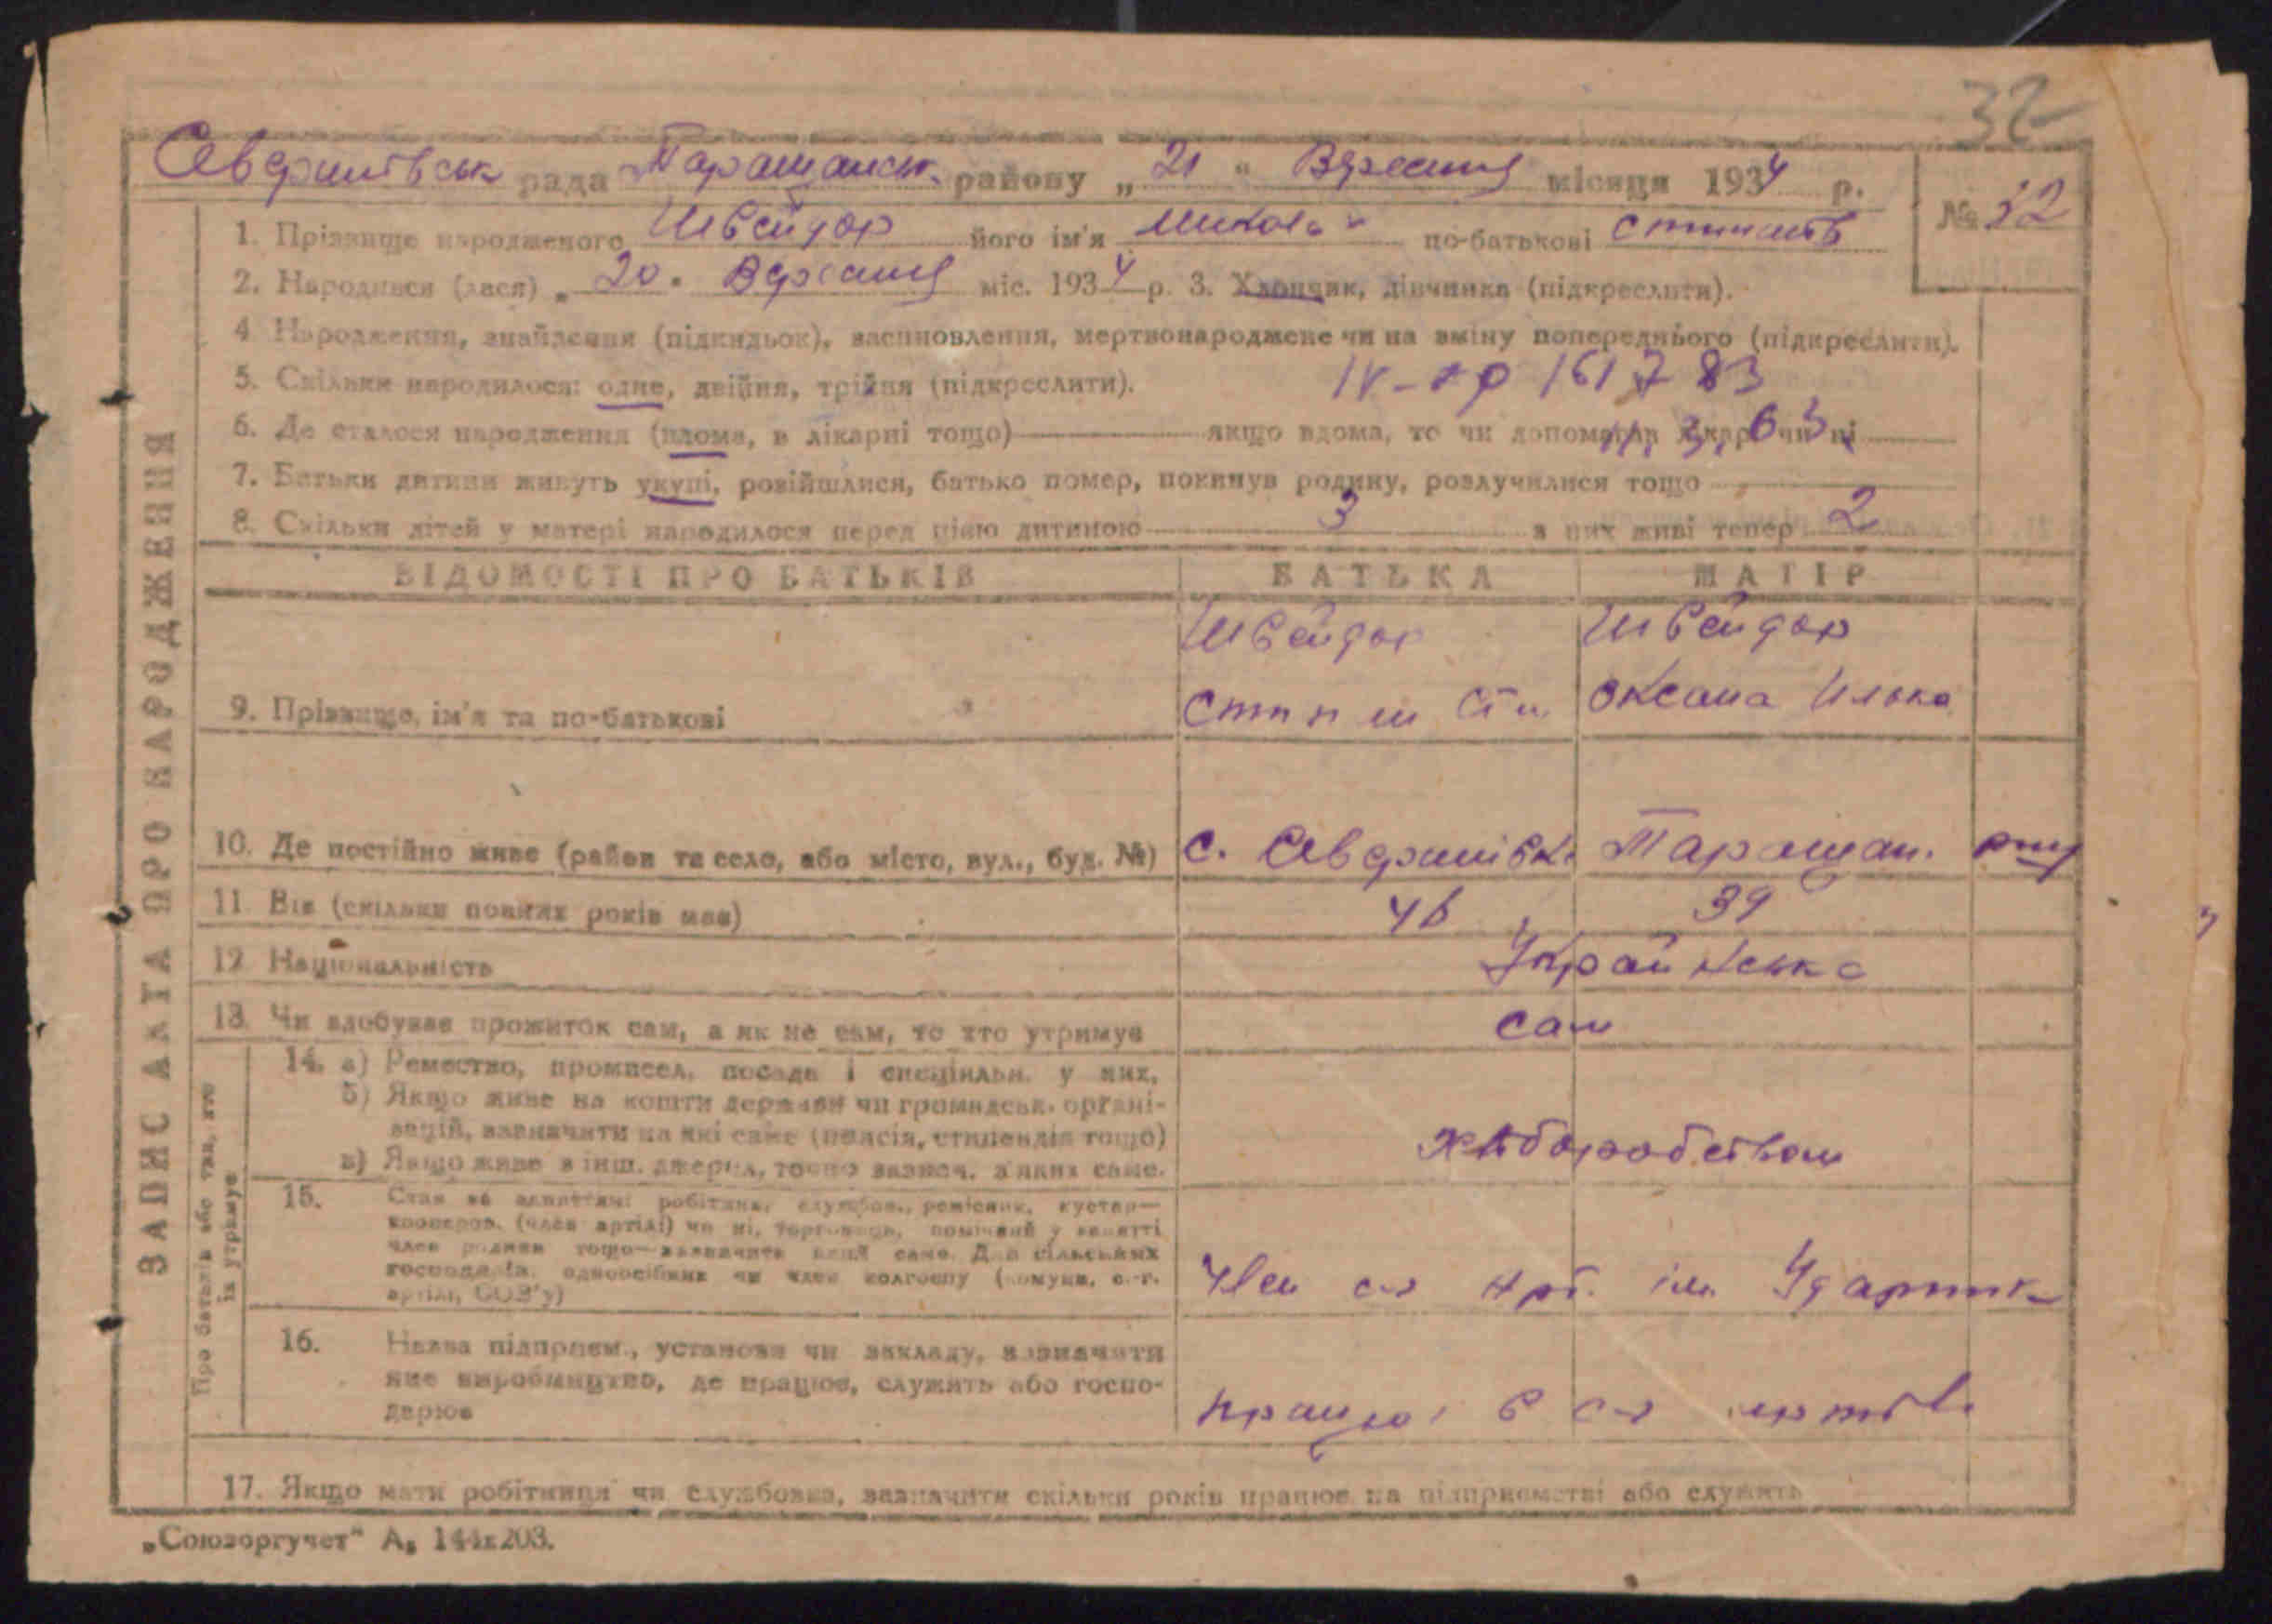 32
Северинівськ рада Таращанськ. району „ 21 " Вересня місяця 1934 р.
№ 32
1. Прізвище народженого Швейдор його ім'я Микола по-батькові
2. Народився (лася) „ 20 " Вересня міс. 1934 р. 3. Хлопчик, дівчинка (підкреслити).
4 Народження, знайдення (підкидьок), васиновлення, мертвонароджене чи на зміну попереднього (підкреслити).
5. Скільки народилося: одне, двійня, трійня (підкреслити).
161783
6. Де сталося народження (вдома, в лікарні тощо) якщо вдома, то чи допомагав лікар чи ні
11. 3. 63.
7. Батьки дитини живуть укупі, розійшлися, батько помер, покинув родину, розлучилися тощо
8. Скільки дітей у матері народилося перед цією дитиною 3 з них живі тепер 2
ВІДОМОСТІ ПРО БАТЬКІВ БАТЬКА МАТІР
Швейдор Швейдор
9. Прізвище, ім'я та по-батькові Оксана Илька
10. Де постійно живе (район та село, або місто, вул., буд. №) с. Северинівка Таращан. рну
11 Вік (скільки повних років має) 46 39
12 Національність Українська
13. Чи здобуває прожиток сам, а як не сам, то хто утримує сам
14. а) Ремество, промисел, посада і спеціяльн. у них,
б) Якщо живе на кошти держави чи громадськ. органі-
зацій, зазначити на які саме (пенсія, стипендія тощо)
в) Якщо живе з інш. джерел, точно зазнач. з яких саме.
хліборобством
15. Стан за заняттям: робітник, службов., ремісник, кустар—
кооперов. (член артілі) чи ні, торговець, помічний у занятті
член родини тощо—зазначити який саме. Для сільських
господарів: одноосібник чи член колгоспу (комуни, с.-г.
артілі, СОЗ'у)
Член с-г арт. ім. Ударник
16. Назва підприєм., установи чи закладу, зазначити
яке виробництво, де працює, служить або госпо-
дарює
працює в с-г артілі
17. Якщо мати робітниця чи службовка, зазначити скільки років працює на підприємстві або служить
ЗАПИС АКТА ПРО НАРОДЖЕННЯ
Про батьків або тих, хто
їх утримує
„Союзоргучет" А5 144х203.